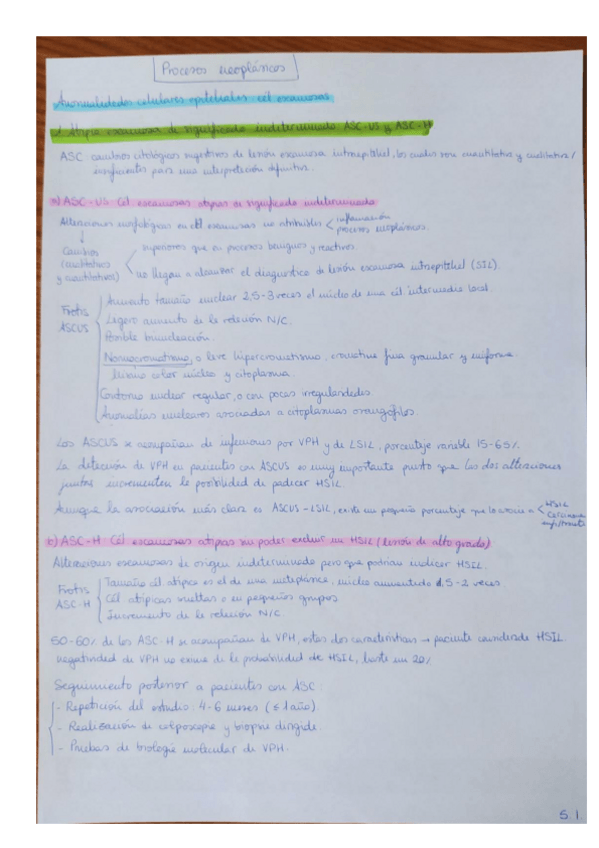 Procesos neoplásicos
Anormalidades celulares epiteliales cél escamosas
Atipia escamosa de significado indeterminado ASC-US y ASC-H
ASC cambios citológicos sugestivos de lesión escamosa intraepitelial, los cuales son cuantitativa y cualitativa/
insuficientes para una interpretación definitiva.
a) ASC-US Cél escamosas atipias de significado indeterminado
Alteraciones morfológicas en cél escamosas no atribuibles < inflamación
procesos neoplásicos.
Cambios
(cualitativos
y cuantitativos)
superiores que en procesos benignos y reactivos
no llegan a alcanzar el diagnostico de lesión escamosa intraepitelial (SIL).
Frotis
ASCUS
Aumento tamaño nuclear 2,5-3 veces el núcleo de una cél. intermedia local.
Ligero aumento de la relación N/C.
Posible binucleación.
Normocromatismo, o leve hipercromatismo, cromatina fina granular y uniforme
mismo color núcleo y citoplasma.
Contorno nuclear regular, o con pocas irregularidades.
Anomalías nucleares asociadas a citoplasmas orangófilos.
Los ASCUS se acompañan de infecciones por VPH y de LSIL, porcentaje variable 15-65%.
La detección de VPH en pacientes con ASCUS es muy importante puesto que las dos alteraciones
juntas incrementen la posibilidad de padecer HSIL
Aunque la asociación más clara es ASCUS-LSIL, existe un pequeño porcentaje que lo asocia a < HSIL
Carcinoma
infiltrante
b) ASC-H Cél escamosas atipas sin poder excluir un HSIL (lesión de alto grado)
Alteraciones escamosas de origen indeterminado pero que podrian indicar HSIL.
Frotis
ASC-H
Tamaño cél atipica es el de una metaplásica, núcleo aumentado 1,5-2 veces
Cél atipicas sueltas o en pequeños grupos
Incremento de la relación N/C
50-60% de los ASC-H se acompañan de VPH, estas dos caracteristicas → paciente HSIL
negatividad de VPH no exime de la probabilidad de HSIL, hasta un 20%
Seguimiento posterior a pacientes con ASC:
- Repetición del estudio: 4-6 meses (≤ 1 año).
- Realización de colposcopia y biopsia dirigida.
- Pruebas de biología molecular de VPH.
5.1.